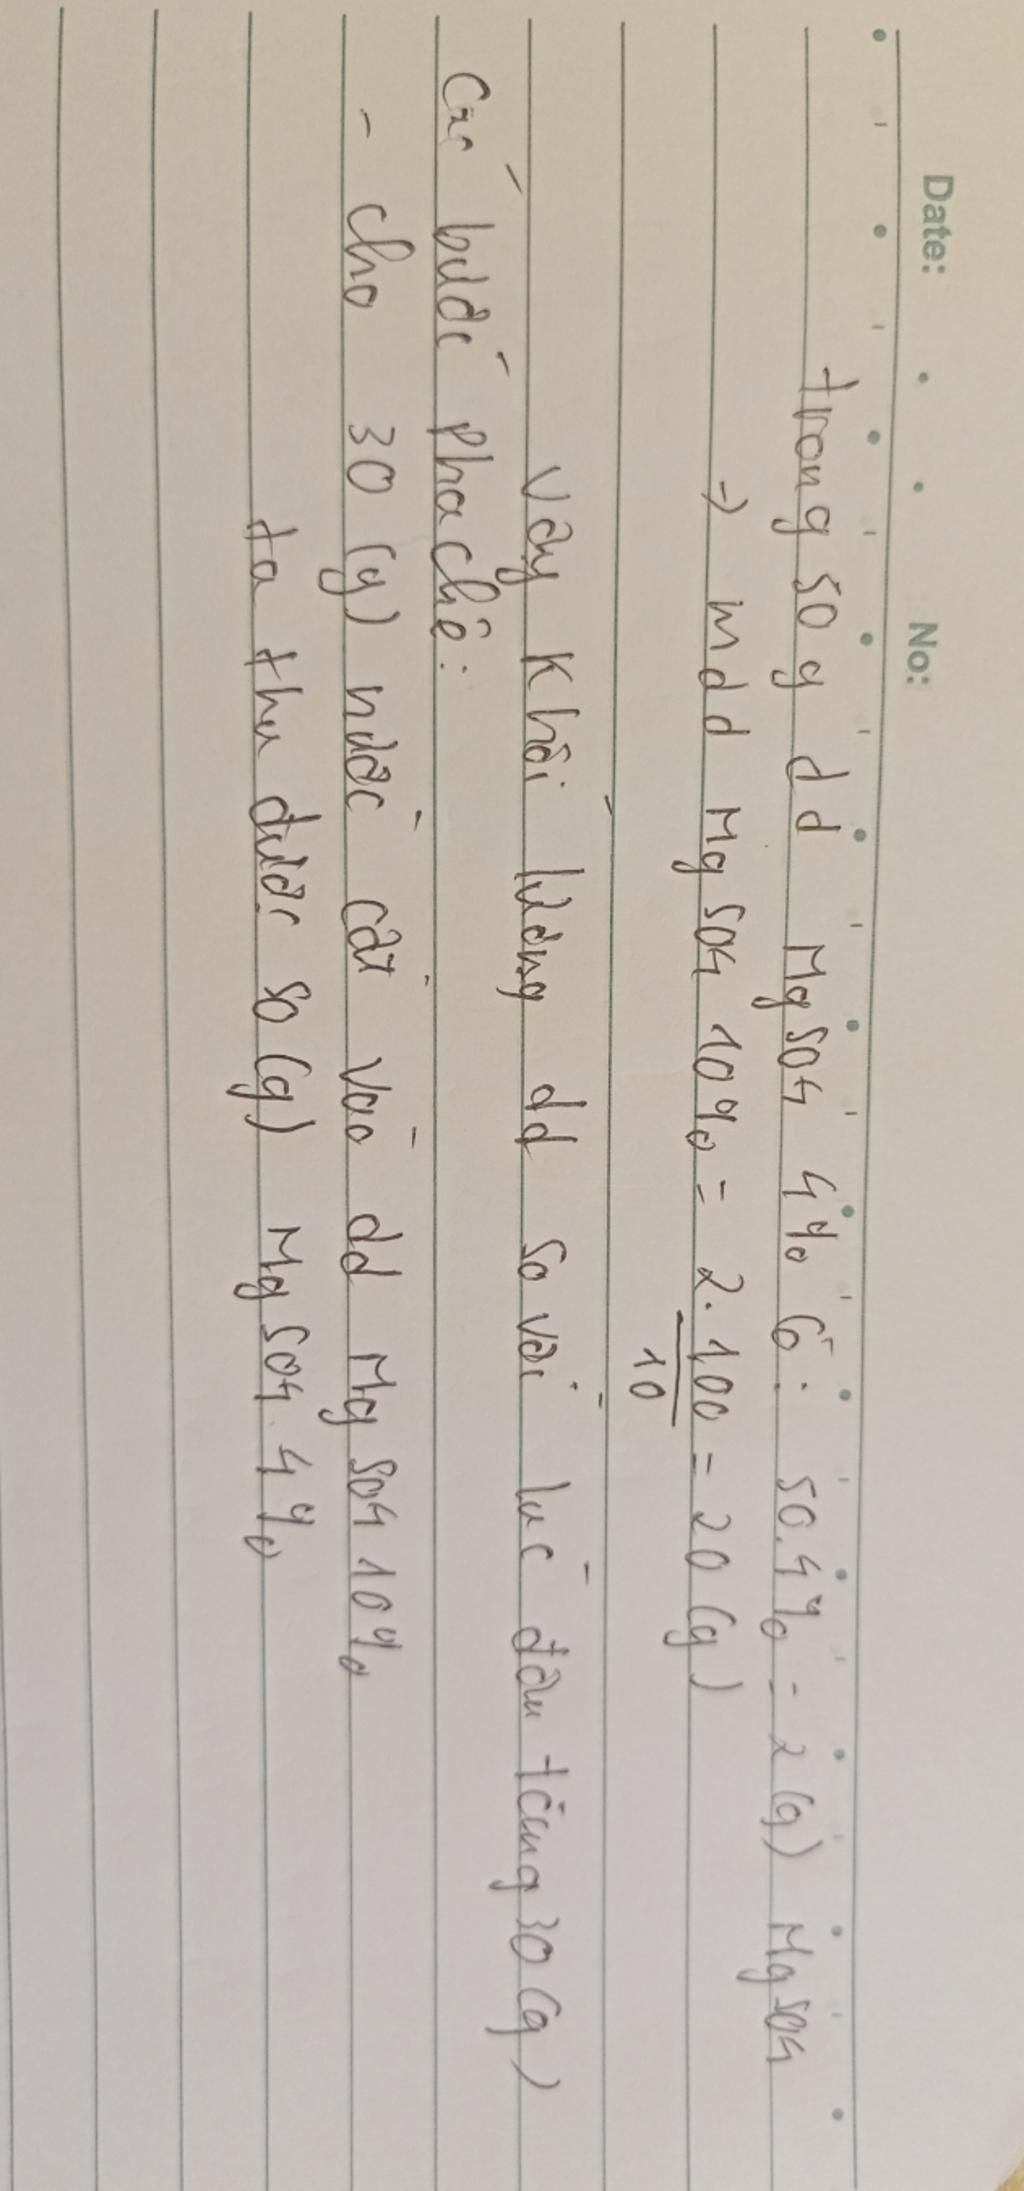 Date: No:
trong 50 g dd MgSO4 4% có : 50.4% = 2 (g) MgSO4
→ mdd MgSO4 10% = 2.100 = 20 (g)
10
Vậy khối lượng dd so với lúc đầu tăng 30 (g)
Các bước pha chế :
- cho 30 (g) nước cất vào dd MgSO4 10%
ta thu được 50 (g) MgSO4 4%